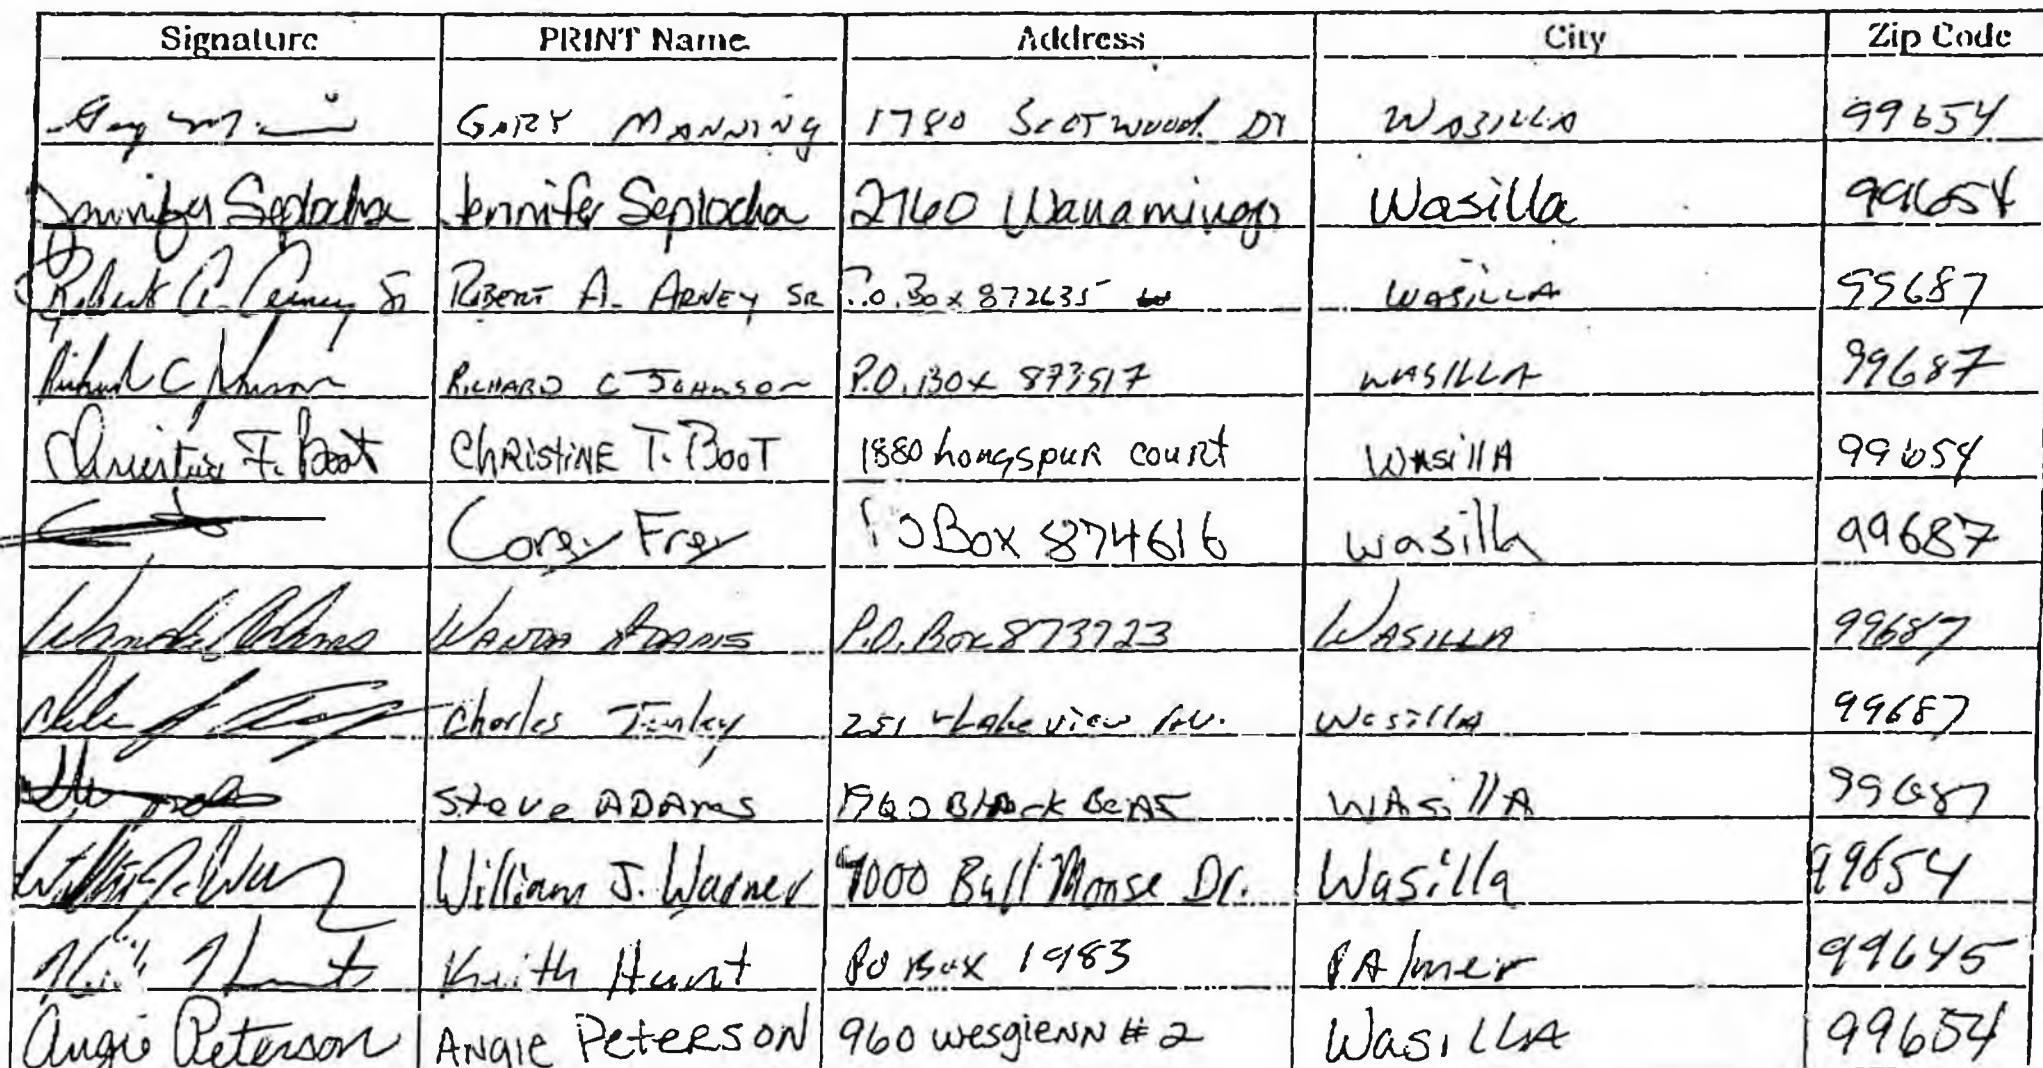 Signature PRINT Name Address City Zip Code
GARY MANNING 1780 Scotwood Dr WASILLA 99654
Jennifer Seplocha Jennifer Seplocha 2760 Wanamingo Wasilla 99654
Robert A. Arney Sr ROBERT A. ARNEY SR P.O. Box 872635 WASILLA 99687
Richard C Johnson RICHARD C JOHNSON P.O. BOX 873517 WASILLA 99687
Christine T. Boot CHRISTINE T. BOOT 1880 Longspur court WasillA 99654
Corey Frey PO Box 874616 wasilla 99687
Wanda Adams WANDA ADAMS P.O. Box 873723 WASILLA 99687
Charles 251 Lakeview Av. WasillA 99687
Steve ADAms 1960 Black WAsillA 99687
William J. Warner Bull Moose Dr. Wasilla 99654
Keith Hunt Keith Hunt PO Box 1983 PAlmer 99645
Angie Peterson ANGIE PETERSON 960 wesglenn # 2 WasiLLA 99654